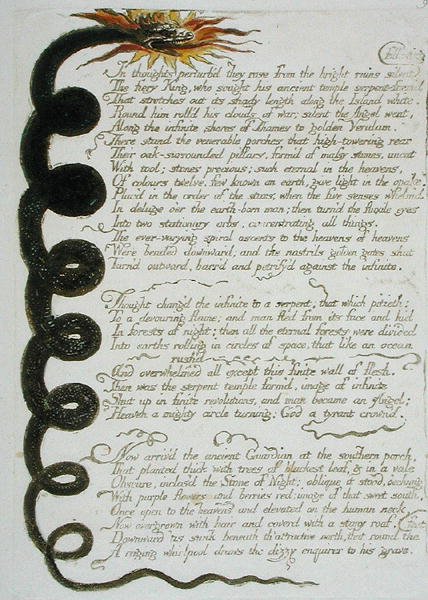 following
In thoughts perturb'd they rose from the bright ruins silent
The fiery King, who sought his ancient temple serpent-form'd
That stretches out its shady length along the Island white.
Round him roll'd his clouds of war; silent the Angel went,
Along the infinite shores of Thames to golden Verulam.
There stand the venerable porches that high-towering rear
Their oak-surrounded pillars, form'd of massy stones, uncut
With tool; stones precious; such eternal in the heavens,
Of colours twelve, few known on earth, give light in the opake,
Plac'd in the order of the stars, when the five senses whelm'd
In deluge o'er the earth-born man; then turn'd the fluxile eyes
Into two stationary orbs, concentrating all things.
The ever-varying spiral ascents to the heavens of heavens
Were bended downward; and the nostrils golden gates shut
Turn'd outward, barr'd and petrify'd against the infinite.
Thought chang'd the infinite to a serpent; that which pitieth:
To a devouring flame; and man fled from its face and hid
In forests of night; then all the eternal forests were divided
Into earths rolling in circles of space, that like an ocean
rush'd
And overwhelmed all except this finite wall of flesh.
Then was the serpent temple form'd, image of infinite
Shut up in finite revolutions, and man became an Angel;
Heaven a mighty circle turning; God a tyrant crown'd.
Now arriv'd the ancient Guardian at the southern porch,
That planted thick with trees of blackest leaf, & in a vale
Obscure, inclos'd the Stone of Night; oblique it stood, o'erhung
With purple flowers and berries red; image of that sweet south,
Once open to the heavens and elevated on the human neck,
Now overgrown with hair and coverd with a stony roof,
Downward 'tis sunk beneath th'attractive north, that round the
feet
A raging whirlpool draws the dizzy enquirer to his grave.